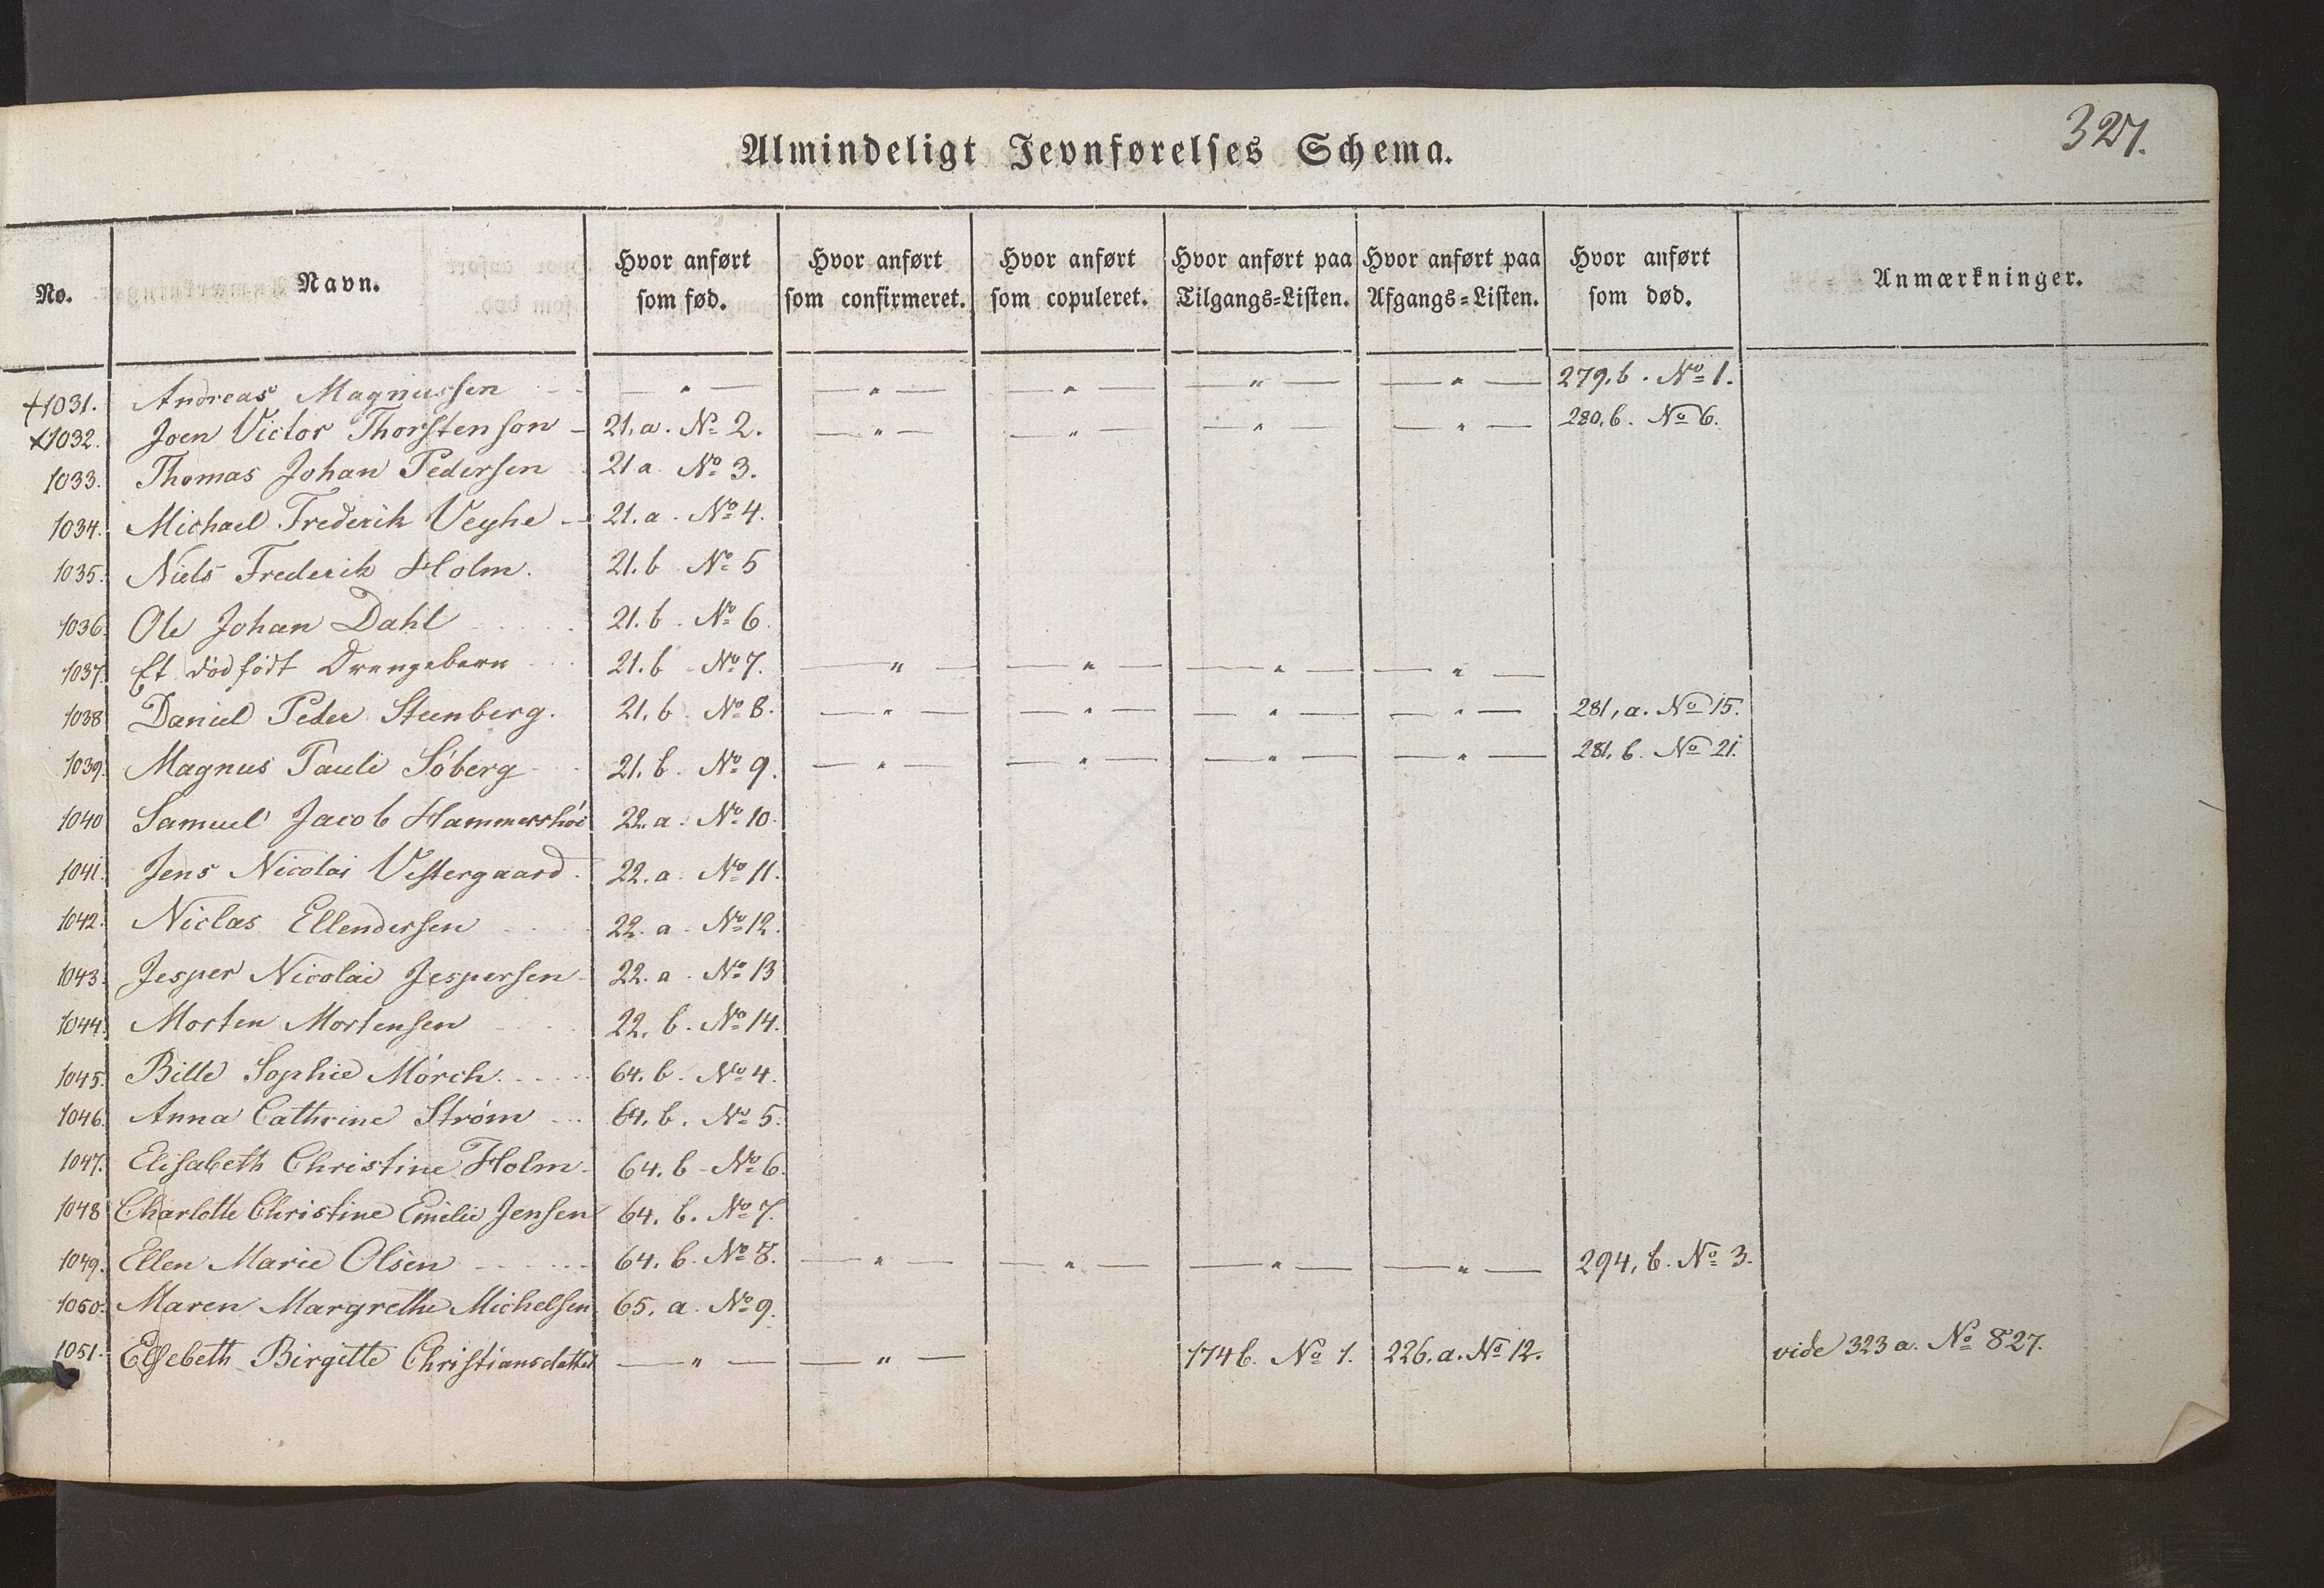 327.
Almindeligt Jevnførelses Schema.
No. Navn. Hvor anført som fød. Hvor anført som confirmeret. Hvor anført som copuleret. Hvor anført paa Tilgangs-Listen. Hvor anført paa Afgangs-Listen. Hvor anført som død. Anmærkninger.
+1031. Andreas Magnussen — " — — " — — " — — " — — " — 279, b. No 1.
x1032. Joen Victor Thorstenson 21, a. No 2. — " — — " — — " — — " — 280, b. No 6.
1033. Thomas Johan Pedersen 21 a. No 3.
1034. Michael Frederik Veyhe 21. a. No 4.
1035. Niels Frederik Holm. 21. b No 5
1036. Ole Johan Dahl 21. b. No 6.
1037. Et dødfødt Drengebarn 21. b No 7. — " — — " — — " — — " —
1038 Daniel Peder Steenberg. 21, b. No 8. — " — — " — — " — — " — 281, a. No 15.
1039. Magnus Pauli Söberg 21, b. No 9. — " — — " — — " — — " — 281, b. No 21.
1040 Samuel Jacob Hammershöi 22. a. No 10.
1041. Jens Nicolai Vestergaard. 22. a. No 11.
1042. Niclas Ellendersen 22. a. No 12.
1043. Jesper Nicolai Jespersen 22. a. No 13
1044. Morten Mortensen 22, b. No 14.
1045. Bille Sophie Mörch. 64. b. No 4.
1046. Anna Cathrine Ström 64, b. No 5.
1047. Elisabeth Christine Holm. 64. b - No 6.
1048 Charlotte Christine Emilie Jensen 64, b. No 7.
1049. Ellen Marie Olsen 64, b. No 8. — " — — " — — " — — " — 294, b. No 3.
1050. Maren Margrethe Michelsen 65, a. No 9.
1051. Elsebeth Birgitte Christiansdatter — " — — " — 174 b. No 1. 226. a. No 12. vide 323 a. No 827.